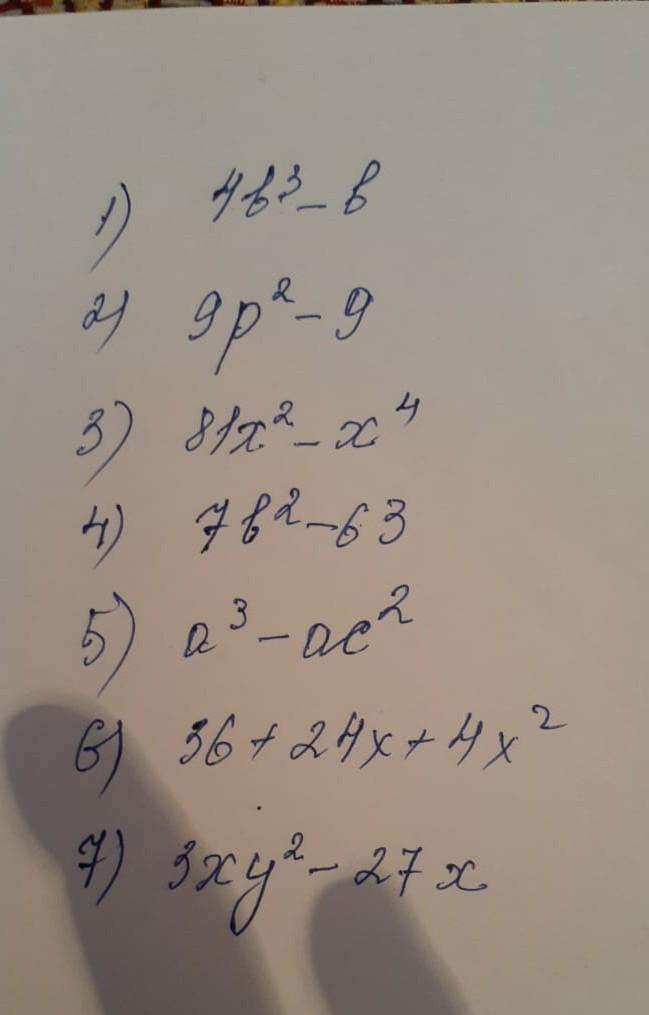 1) 4b³ - b
2) 9p² - 9
3) 81x² - x⁴
4) 7b² - 63
5) a³ - ac²
6) 36 + 24x + 4x²
7) 3xy² - 27x